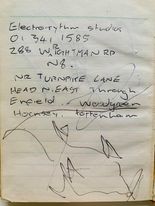 Electro-rythm studios
01 341 1585
288 WIGHTMAN RD
N8.
NR TURNPIKE LANE
HEAD N. EAST through
Enfield Woodgreen
Hornsey. Tottenham